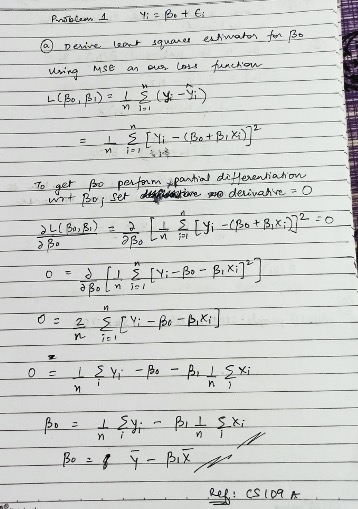 Problem 1 Yi = β0 + Ei
(a) Derive least squares estimator for β0
Using MSE as our loss function
L(β0, β1) = 1/n Σ_{i=1}^{n} (yi - ŷi)
= 1/n Σ_{i=1}^{n} [Yi - (β0 + β1 Xi)]²
To get β0 perform partial differentiation
wrt β0, set derivative = 0
∂L(β0, β1)/∂β0 = ∂/∂β0 [1/n Σ_{i=1}^{n} [yi - (β0 + β1 Xi)]² = 0
0 = ∂/∂β0 [1/n Σ_{i=1}^{n} [Yi - β0 - β1 Xi]²]
0 = 2/n Σ_{i=1}^{n} [Yi - β0 - β1 Xi]
0 = 1/n Σ_i Yi - β0 - β1 1/n Σ_i Xi
β0 = 1/n Σ_i yi - β1 1/n Σ_i Xi
β0 = ȳ - β1 x̄
Ref: CS109 A